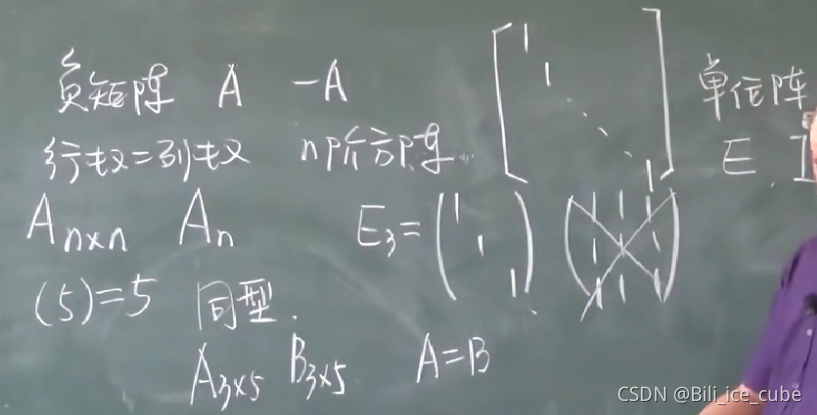 负矩阵 A -A
[1 1 ⋱ 1] 单位阵
行数=列数 n阶方阵
E, I
A_{n×n} A_n
E_3=(1 1 1) (1 1 1 1 1 1 1 1 1)
(5)=5 同型.
A_{3×5} B_{3×5} A=B
CSDN @Bili_ice_cube